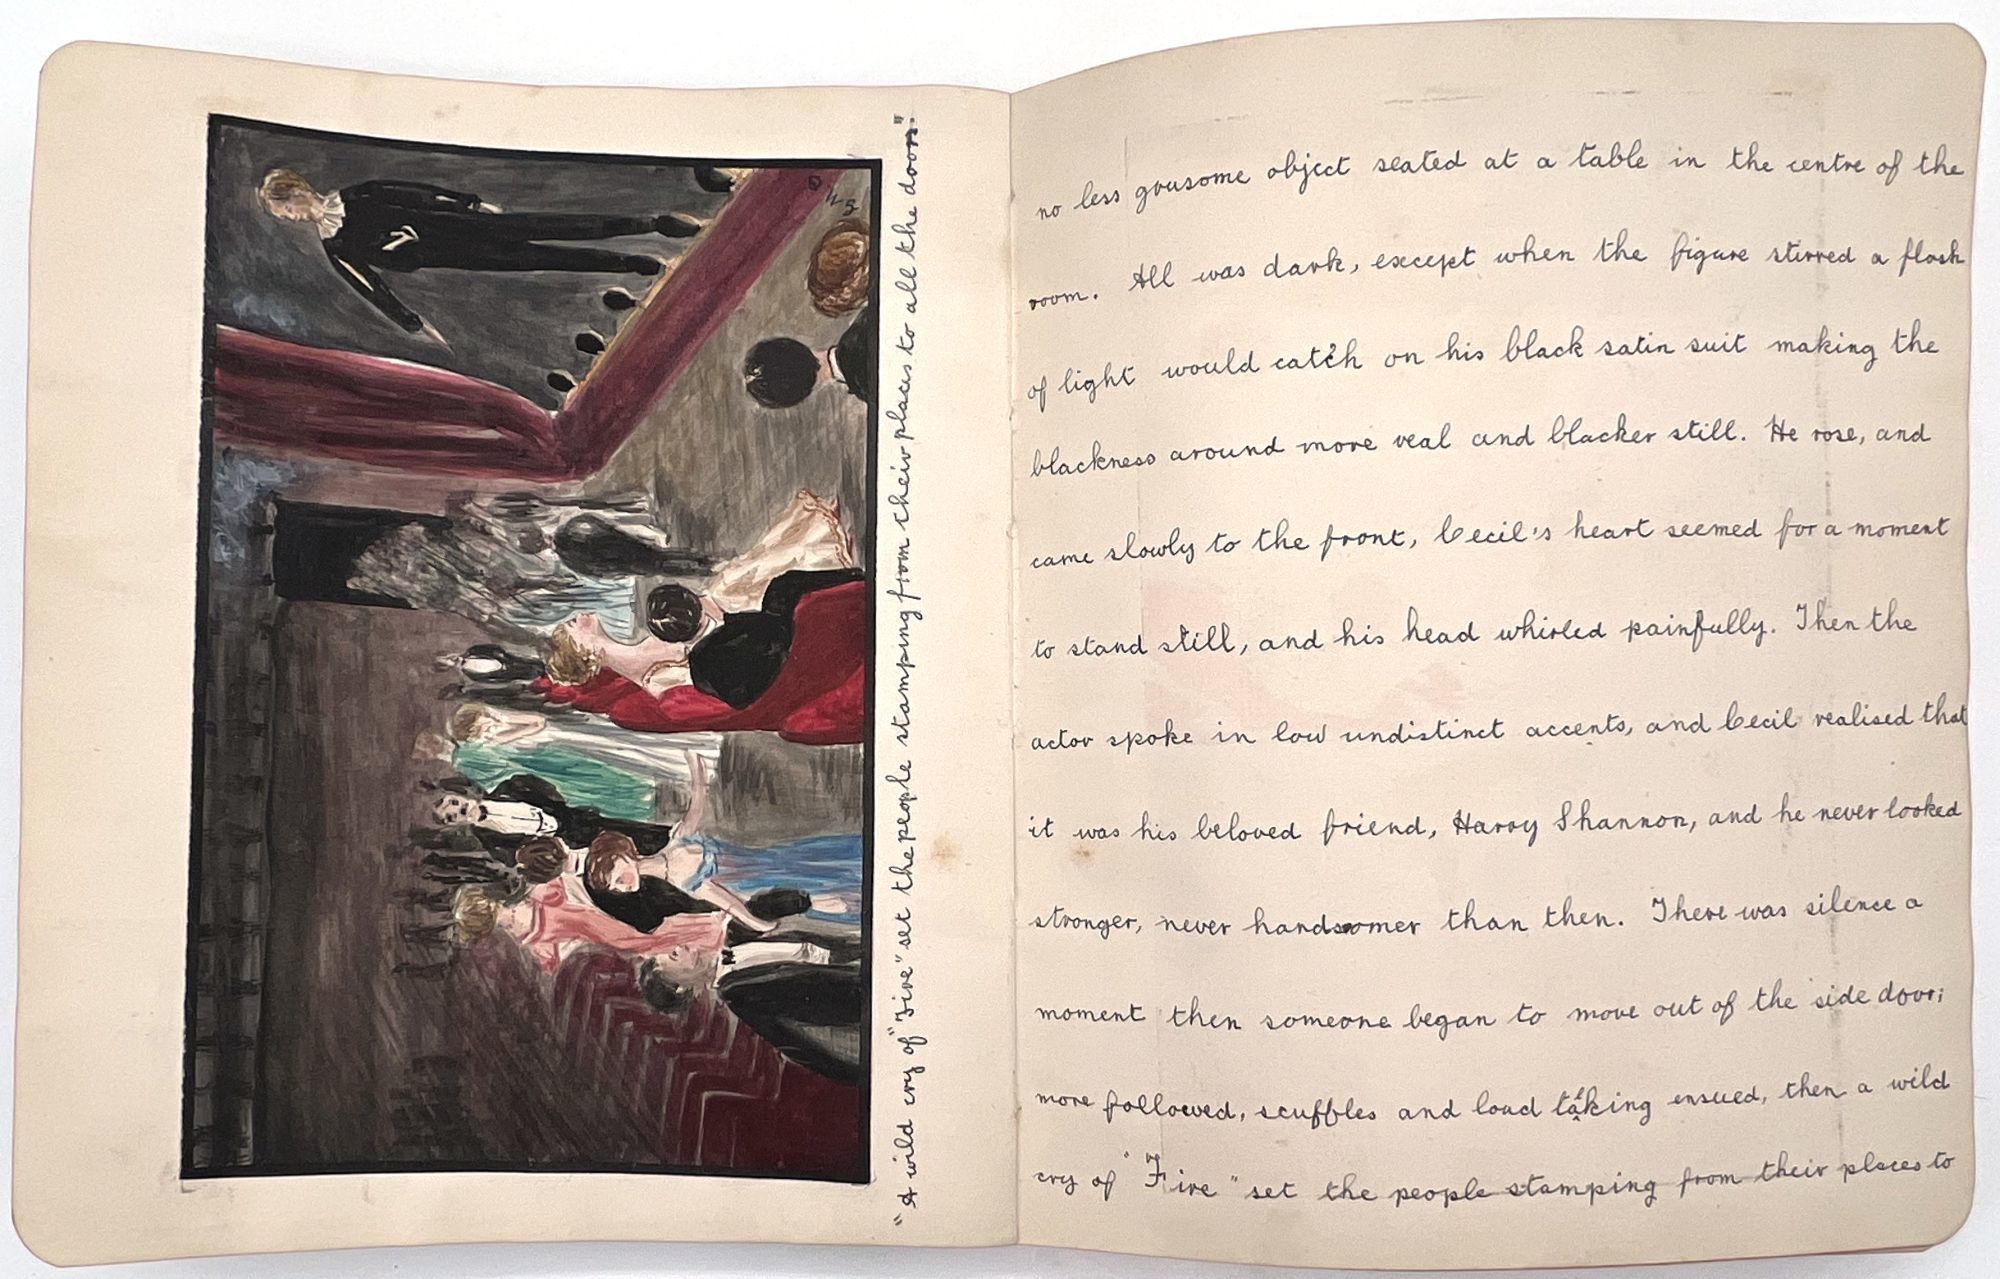 "A wild cry of "Fire" set the people stamping from their places to all the doors".
no less gousome object seated at a table in the centre of the
room. All was dark, except when the figure stirred a flash
of light would catch on his black satin suit making the
blackness around more real and blacker still. He rose, and
came slowly to the front, Cecil's heart seemed for a moment
to stand still, and his head whirled painfully. Then the
actor spoke in low undistinct accents, and Cecil realised that
it was his beloved friend, Harry Shannon, and he never looked
stronger, never handsomer than then. There was silence a
moment then someone began to move out of the side door;
more followed, scuffles and loud talking ensued, then a wild
cry of "Fire" set the people stamping from their places to